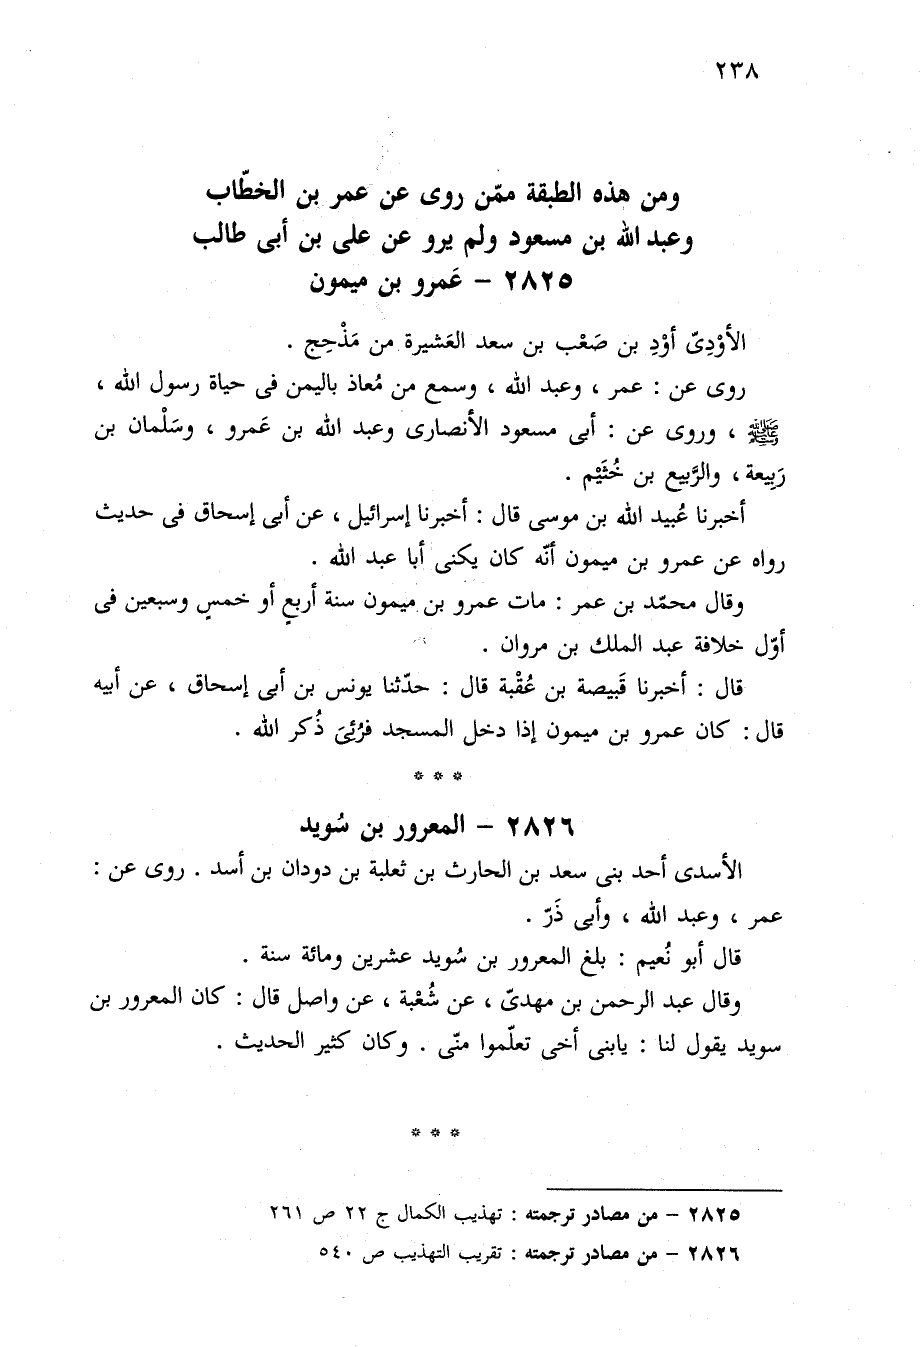 ٢٣٨
ومن هذه الطبقة ممّن روى عن عمر بن الخطّاب
وعبد الله بن مسعود ولم يرو عن على بن أبى طالب
٢٨٢٥ - عَمرو بن ميمون
الأوْدِىّ أوْدِ بن صَعْب بن سعد العَشيرة من مَذْحِج .
روى عن : عمر ، وعبد الله ، وسمع من مُعاذ باليمن فى حياة رسول الله ،
ﷺ ، وروى عن : أبى مسعود الأنصارى وعبد الله بن عَمرو ، وسَلْمان بن
رَبِيعة ، والرَّبيع بن خُثَيْم .
أخبرنا عُبيد الله بن موسى قال : أخبرنا إسرائيل ، عن أبى إسحاق فى حديث
رواه عن عمرو بن ميمون أنّه كان يكنى أبا عبد الله .
وقال محمّد بن عمر : مات عمرو بن ميمون سنة أربعٍ أو خمسٍ وسبعين فى
أوّل خلافة عبد الملك بن مروان .
قال : أخبرنا قَبيصة بن عُقْبة قال : حدّثنا يونس بن أبى إسحاق ، عن أبيه
قال : كان عمرو بن ميمون إذا دخل المسجد فرُئِىَ ذُكر الله .
* * *
٢٨٢٦ - المعرور بن سُويد
الأسدى أحد بنى سعد بن الحارث بن ثعلبة بن دودان بن أسد . روى عن :
عمر ، وعبد الله ، وأبى ذَرّ .
قال أبو نُعيم : بلغ المعرور بن سُويد عشرين ومائة سنة .
وقال عبد الرحمن بن مهدىّ ، عن شُعْبة ، عن واصل قال : كان المعرور بن
سويد يقول لنا : يابنى أخى تعلّموا منّى . وكان كثير الحديث .
* * *
٢٨٢٥ - من مصادر ترجمته : تهذيب الكمال ج ٢٢ ص ٢٦١
٢٨٢٦ - من مصادر ترجمته : تقريب التهذيب ص ٥٤٠